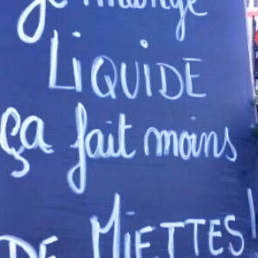 Je mange
LIQUIDE
ça fait moins
DE MIETTES!